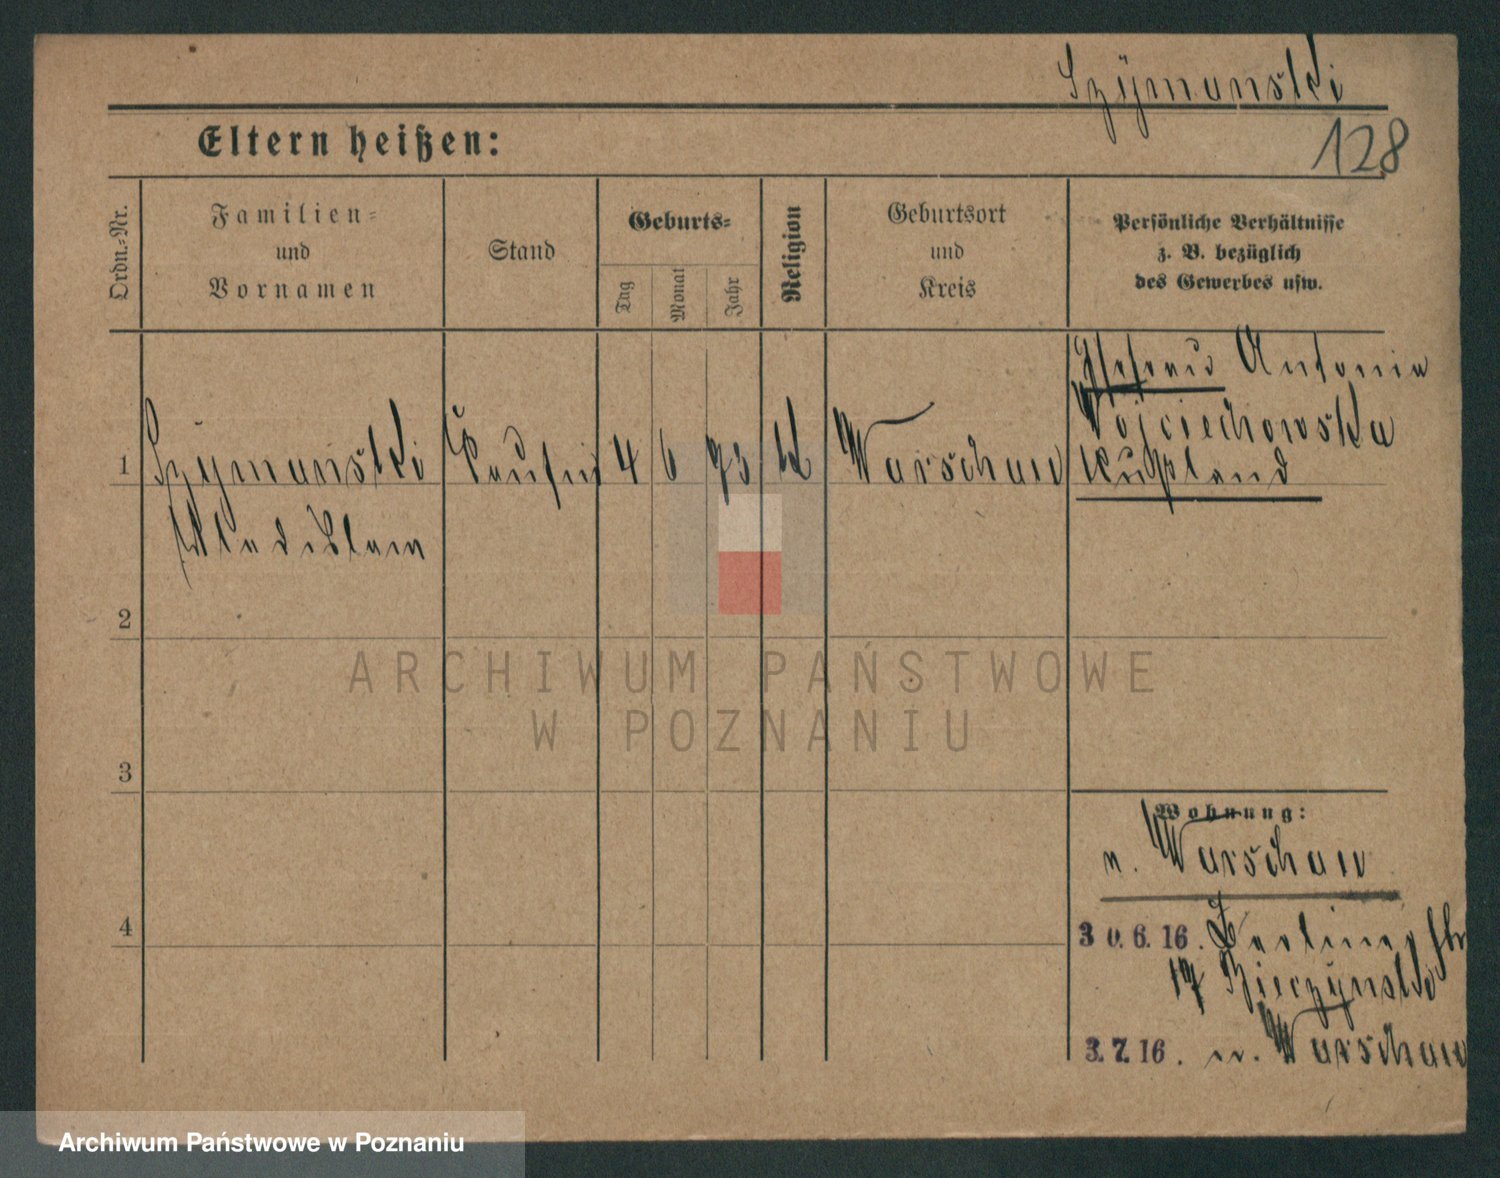 Szymanski
128
Eltern heißen:
Ordn.-Nr.
Familien-
und
Vornamen
Stand
Geburts-
Tag
Monat
Jahr
Religion
Geburtsort
und
Kreis
Persönliche Verhältnisse
z. B. bezüglich
des Gewerbes usw.
Ehefrau Antonie
Wojciechowska
Rußland
1
Szymanski
Kaufm
4
6
73
K
Warschau
Wladislaw
2
3
4
Wohnung:
n. Warschau
30.6.16. Berliner Str
17 Bieczynski
3.7.16. n. Warschau
ARCHIWUM PAŃSTWOWE
W POZNANIU
Archiwum Państwowe w Poznaniu